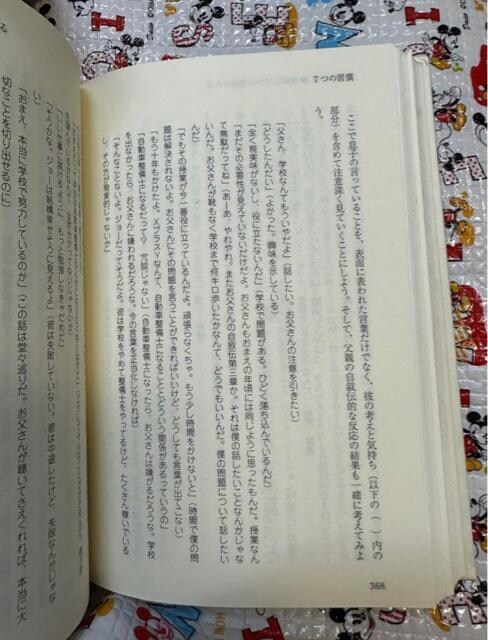 7つの習慣
ここで息子の言っていることを、表面に表われた言葉だけでなく、彼の考えと気持ち(以下の( )内の
部分)を含めて注意深く見ていくことにしよう。そして、父親の自叙伝的な反応の結果も一緒に考えてみよ
う。
「父さん、学校なんてもういやだよ」(話したい。お父さんの注意を引きたい)
「どうしたんだい」(よかった。興味を示している)
「全く現実味がないし、役に立たないんだ」(学校で問題がある。ひどく落ち込んでいるんだ)
「まだその必要性が見えていないだけだよ。お父さんもおまえの年頃には同じように思ったもんだ。授業なん
て無駄だってね」(あーあ、やれやれ。またお父さんの自叙伝第三章か。それは僕の話したいことなんかじゃな
いんだ。お父さんが靴もなく学校まで何キロ歩いたかなんて、どうでもいいんだ。僕の問題について話したい
「でもその授業が今一番役に立っているんだよ。頑張らなくちゃ。もう少し時間をかけないと」(時間で僕の問
題は解決されないよ。お父さんにその問題を言うことができればいいけど、どうしても言葉が出てこない)
「もう十年もかけたよ。XプラスYなんて、自動車整備士になることとどういう関係があるっていうの」
「自動車整備士になるだって? 冗談じゃない」(自動車整備士になったら、お父さんは嫌がるだろうな。学校
を出なかったら、お父さんに嫌われるだろうな。今の言葉を正当化しなければ)
「そんなことないよ。ジョーだってそうだよ。彼は学校をやめて整備士をやってるけど、たくさん稼いでいる
し、その方が現実的じゃないか」
368
「そうかな。ジョーは結構幸せそうに見えるよ」(彼は失敗していない。彼は中退したけど、失敗なんかじゃな
い)
「おまえ、本当に学校で努力しているのか」(この話は堂々巡りだ。お父さんが聴いてさえくれれば、本当に大
切なことを切り出せるのに)